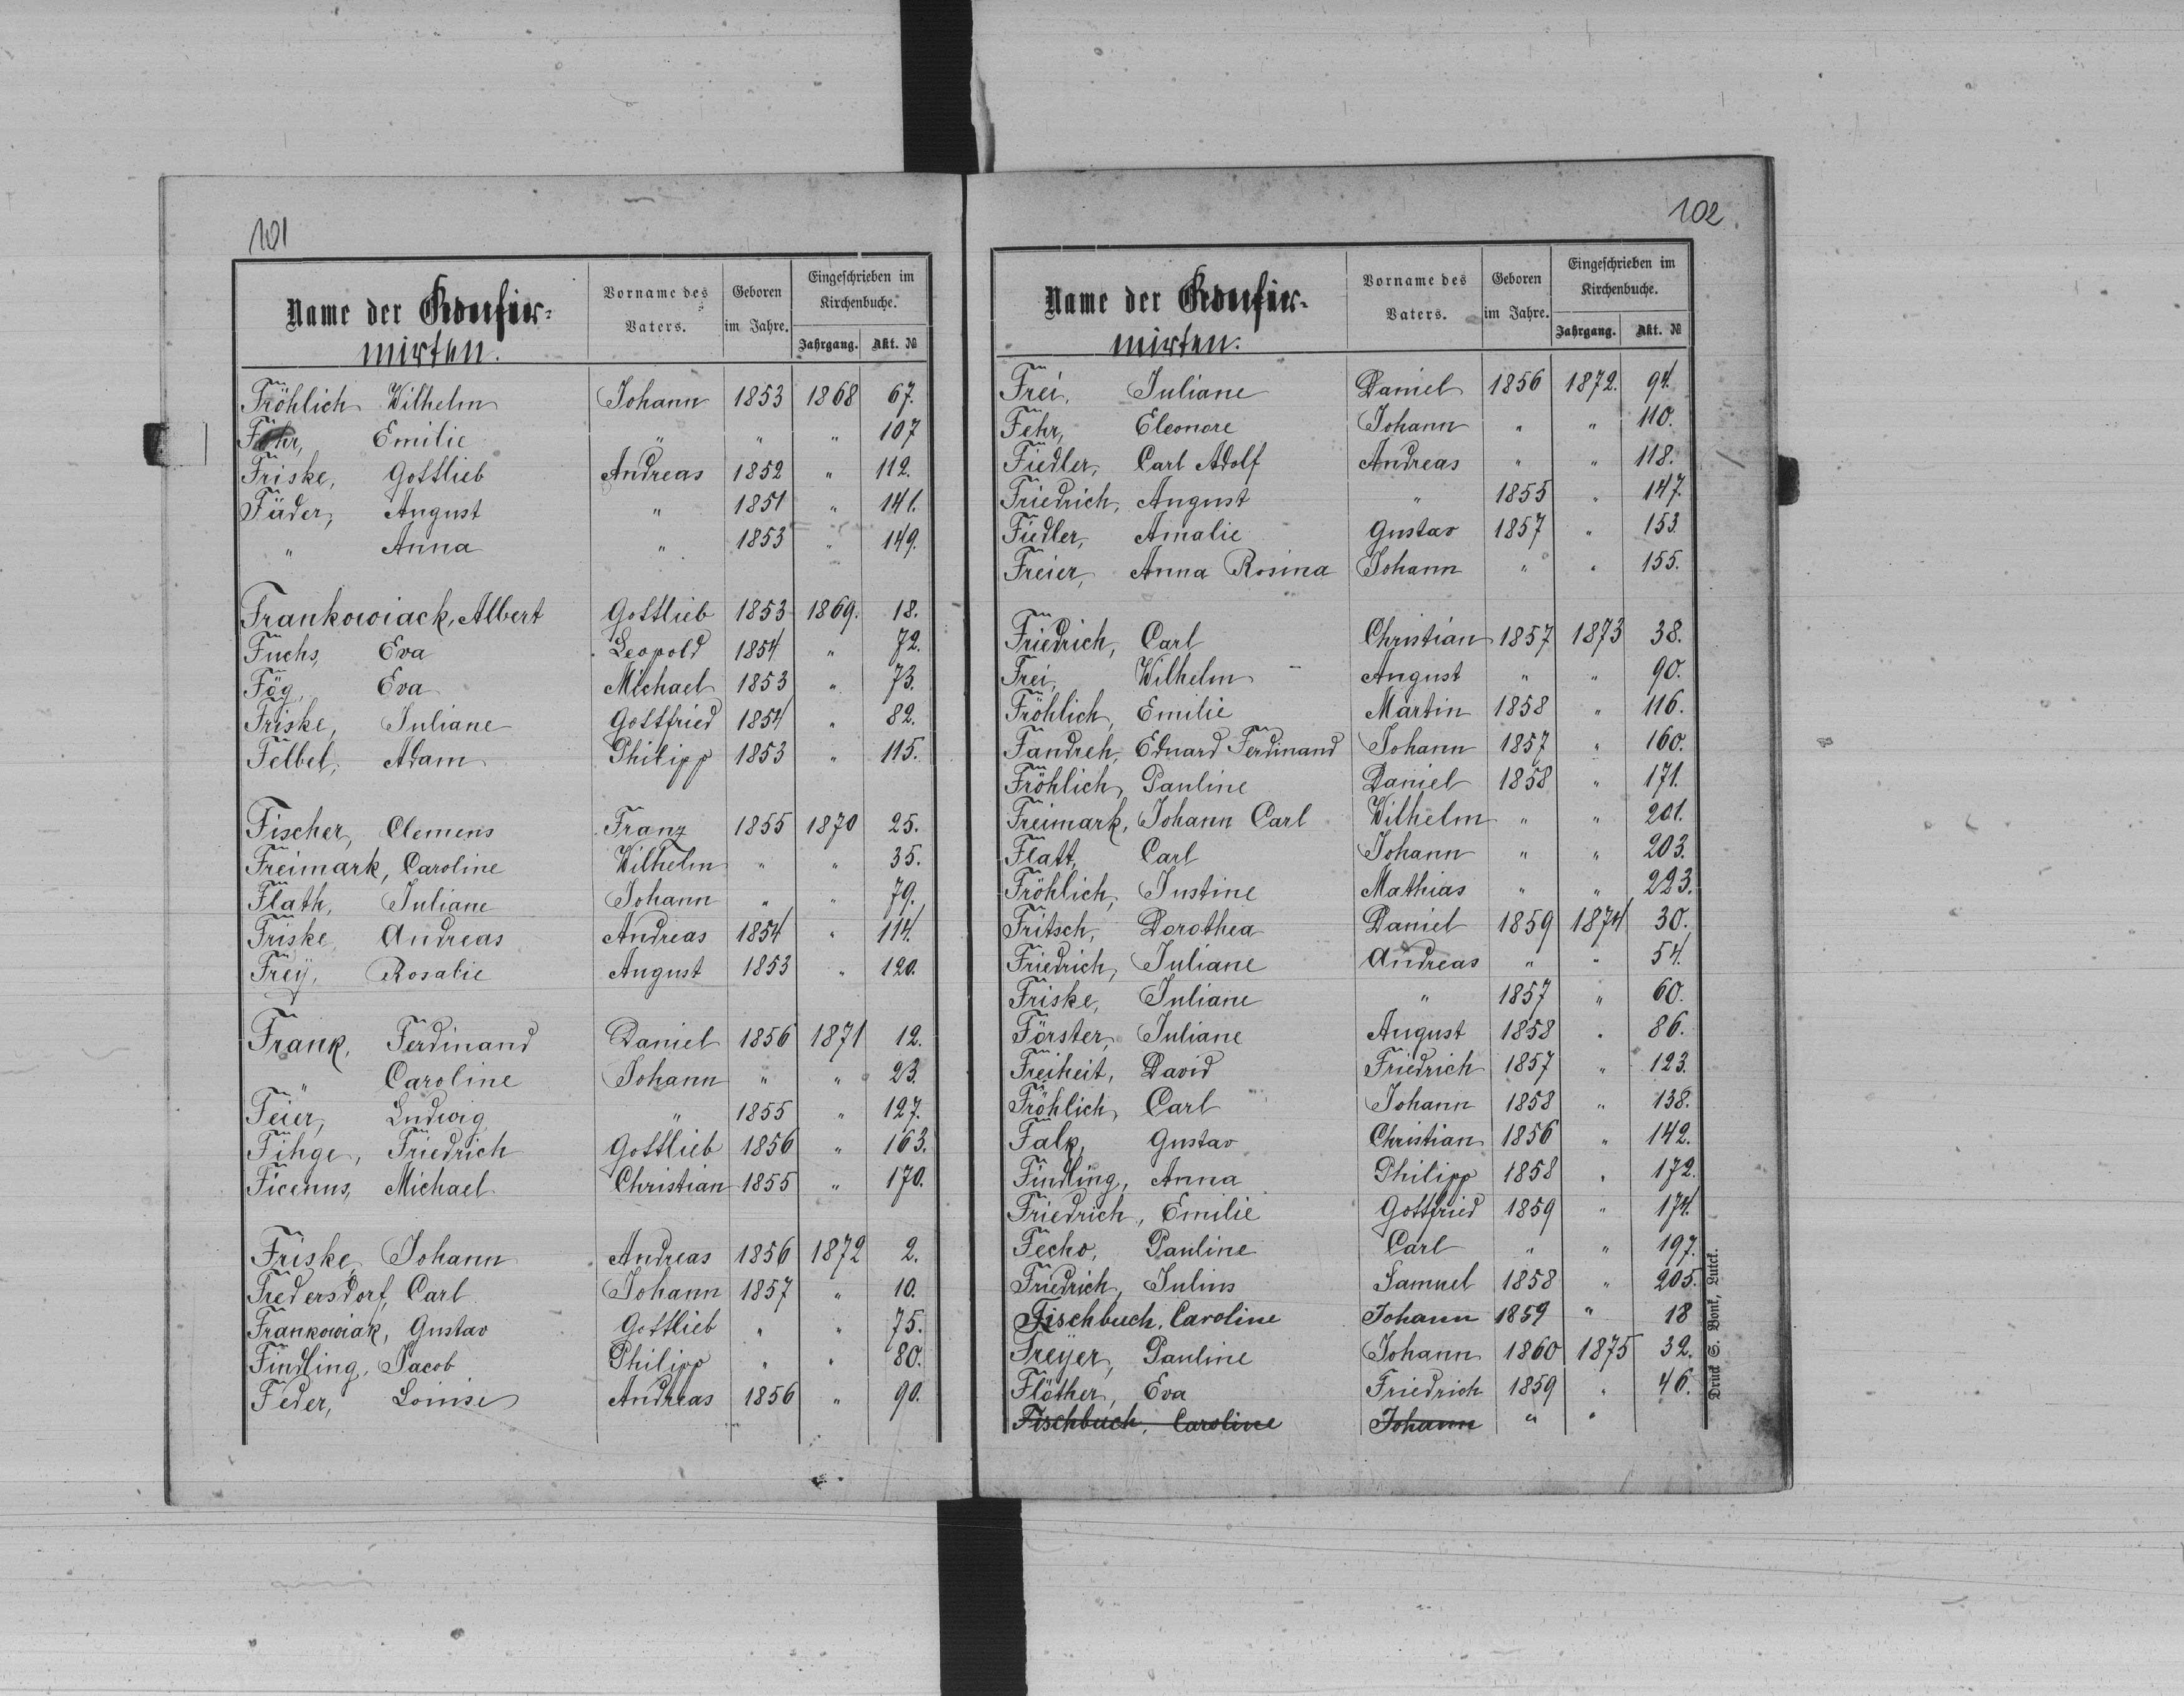 101
Name der Konfir-
mirten.
Vorname des Vaters.
Geboren im Jahre.
Eingeschrieben im Kirchenbuche.
Jahrgang. Akt. №
Fröhlich Wilhelm Johann 1853 1868 67.
Fehr, Emilie " " " 107
Friske, Gottlieb Andreas 1852 " 112.
Fäder, August " 1851 " 141.
" Anna " 1853 " 149.
Frankowiack, Albert Gottlieb 1853 1869. 18.
Fuchs, Eva Leopold 1854 " 72.
Fög, Eva Michael 1853 " 73.
Friske, Juliane Gottfried 1854 " 82.
Felbel, Adam Philipp 1853 " 115.
Fischer, Clemens Franz 1855 1870 25.
Freimark, Caroline Wilhelm " " 35.
Flath, Juliane Johann " " 79.
Friske, Andreas Andreas 1854 " 114.
Freÿ, Rosalie August 1853 " 120.
Frank, Ferdinand Daniel 1856 1871 12.
" Caroline Johann " " 23.
Feier, Ludwig " 1855 " 127.
Fihge, Friedrich Gottlieb 1856 " 163.
Ficenus, Michael Christian 1855 " 170.
Friske, Johann Andreas 1856 1872 2.
Fredersdorf, Carl Johann 1857 " 10.
Frankowiak, Gustav Gottlieb " " 75.
Findling, Jacob Philipp " " 80.
Feder, Louise Andreas 1856 " 90.
102.
Name der Konfir-
mirten.
Vorname des Vaters.
Geboren im Jahre.
Eingeschrieben im Kirchenbuche.
Jahrgang. Akt. №
Frei, Juliane Daniel 1856 1872. 94.
Fehr, Eleonore Johann " " 110.
Fiedler, Carl Adolf Andreas " " 118.
Friedrich, August " 1855 " 147.
Fiedler, Amalie Gustav 1857 " 153.
Freier, Anna Rosina Johann " " 155.
Friedrich, Carl Christian 1857 1873 38.
Frei, Wilhelm August " " 90.
Fröhlich, Emilie Martin 1858 " 116.
Fandreh, Eduard Ferdinand Johann 1857 " 160.
Fröhlich, Pauline Daniel 1858 " 171.
Freimark, Johann Carl Wilhelm " " 201.
Flatt, Carl Johann " " 203.
Fröhlich, Justine Mathias " " 223.
Fritsch, Dorothea Daniel 1859 1874 30.
Friedrich, Juliane Andreas " " 54.
Friske, Juliane " 1857 " 60.
Förster, Juliane August 1858 " 86.
Freiheit, David Friedrich 1857 " 123.
Fröhlich, Carl Johann 1858 " 138.
Falk, Gustav Christian 1856 " 142.
Findling, Anna Philipp 1858 " 172.
Friedrich, Emilie Gottfried 1859 " 174.
Fecho, Pauline Carl " " 197.
Friedrich, Julius Samuel 1858 " 205.
Fischbuch, Caroline Johann 1859 " 18
Freÿer, Pauline Johann 1860 1875 32.
Flöther, Eva Friedrich 1859 " 46.
Fischbuch, Caroline Johann " "
Druck S. Bonk, Luck.